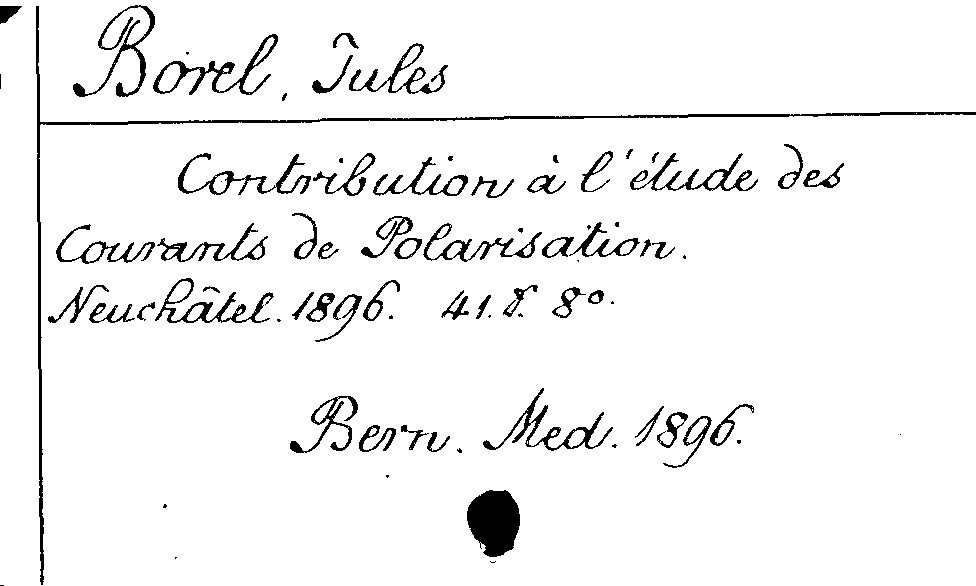 Borel, Jules
Contribution à l'étude des
Courants de Polarisation.
Neuchâtel. 1896. 41. S. 8°.
Bern. Med. 1896.